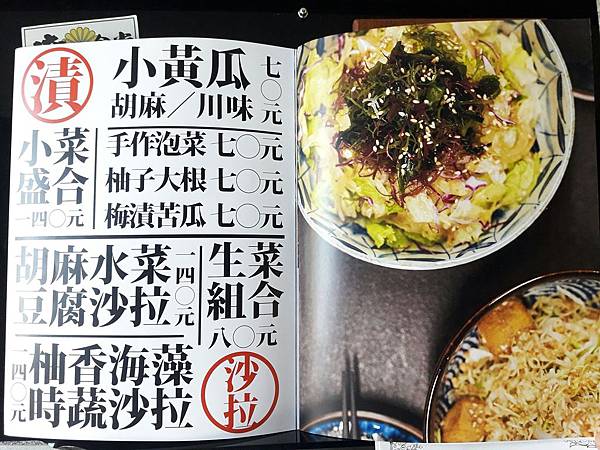 漬
小黃瓜
胡麻／川味
七〇元
小菜
盛合
一四〇元
手作泡菜 七〇元
柚子大根 七〇元
梅漬苦瓜 七〇元
胡麻水菜
豆腐沙拉
一四〇元
生菜
組合
八〇元
柚香海藻
時蔬沙拉
一四〇元
沙拉